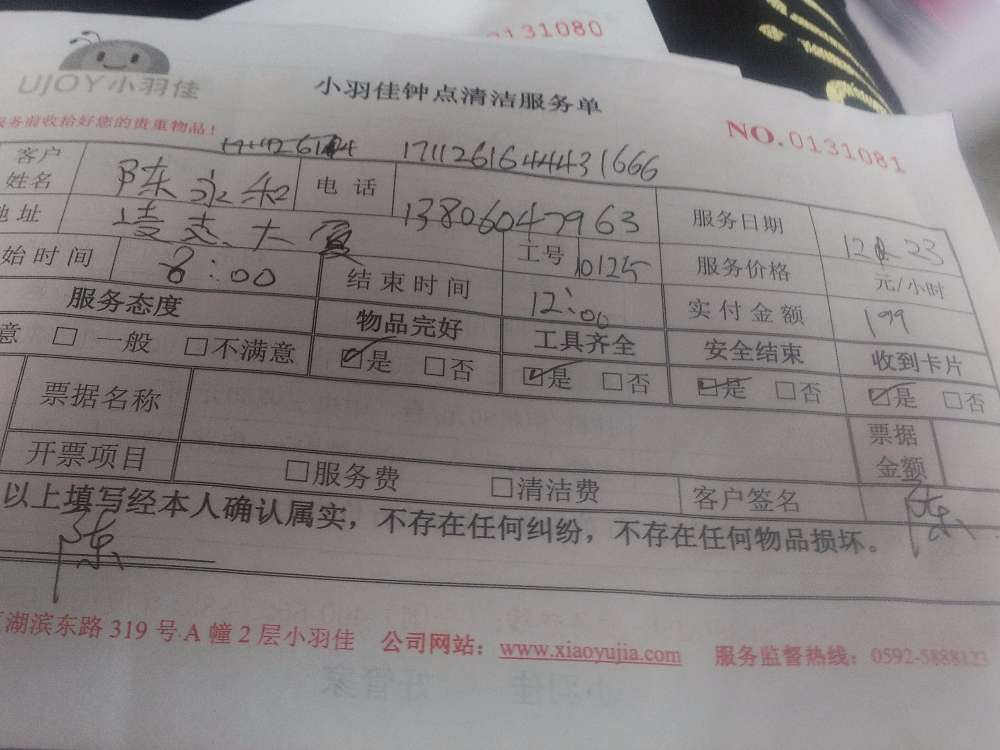 0131080
UJOY小羽佳
小羽佳钟点清洁服务单
务前收拾好您的贵重物品！
NO.0131081
171126164443 1666
客户姓名 陈永和 电话 13806047963 服务日期 12.23
地址 凌志大厦 工号 10125 服务价格 元/小时
始时间 8:00 结束时间 12:00 实付金额 199
服务态度 物品完好 工具齐全 安全结束 收到卡片
意 □ 一般 □不满意 ☑是 □否 ☑是 □否 ☑是 □否 ☑是 □否
票据名称 票据金额
开票项目 □服务费 □清洁费 客户签名 陈
以上填写经本人确认属实，不存在任何纠纷，不存在任何物品损坏。
陈
湖滨东路 319 号 A 幢 2 层小羽佳 公司网站：www.xiaoyujia.com 服务监督热线：0592-5888123